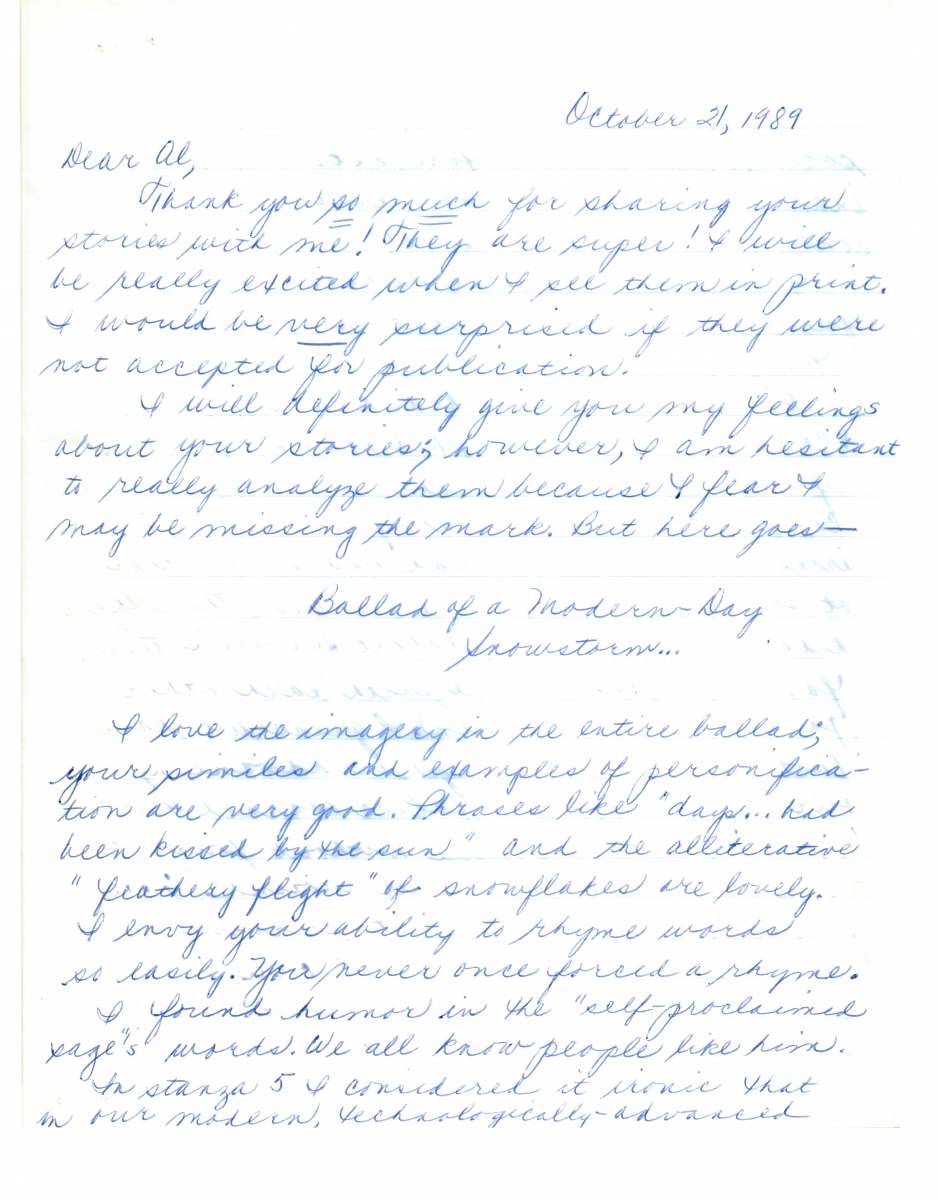 October 21, 1989
Dear Al,
Thank you so much for sharing your
stories with me! They are super! I will
be really excited when I see them in print.
I would be very surprised if they were
not accepted for publication.
I will definitely give you my feelings
about your stories; however, I am hesitant
to really analyze them because I fear I
may be missing the mark. But here goes—
Ballad of a Modern-Day
Snowstorm...
I love the imagery in the entire ballad;
your similes and examples of personifica-
tion are very good. Phrases like "days... had
been kissed by the sun" and the alliterative
"feathery flight" of snowflakes are lovely.
I envy your ability to rhyme words
so easily. You never once forced a rhyme.
I found humor in the "self-proclaimed
sage"'s words. We all know people like him.
In stanza 5 I considered it ironic that
in our modern, technologically-advanced